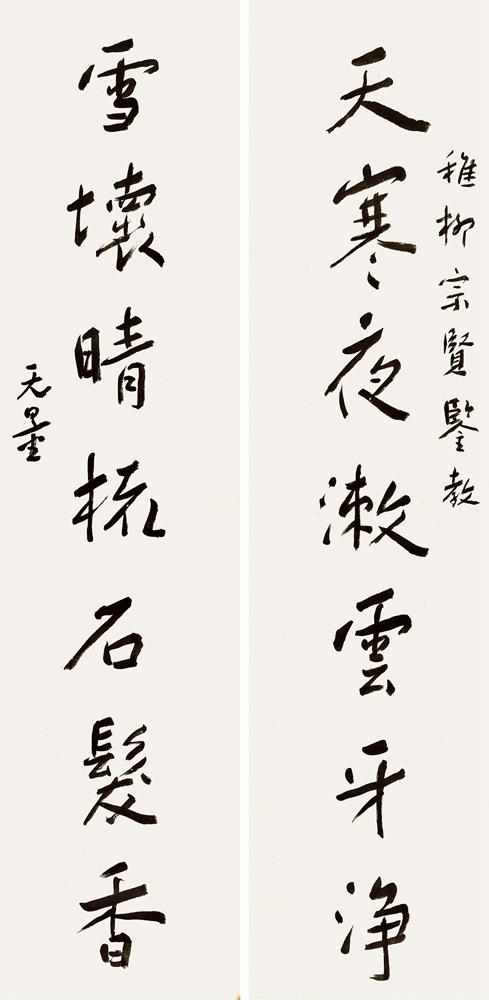 稚柳宗賢鑒教
天寒夜漱雲牙淨
雪壞晴梳石髮香
无量